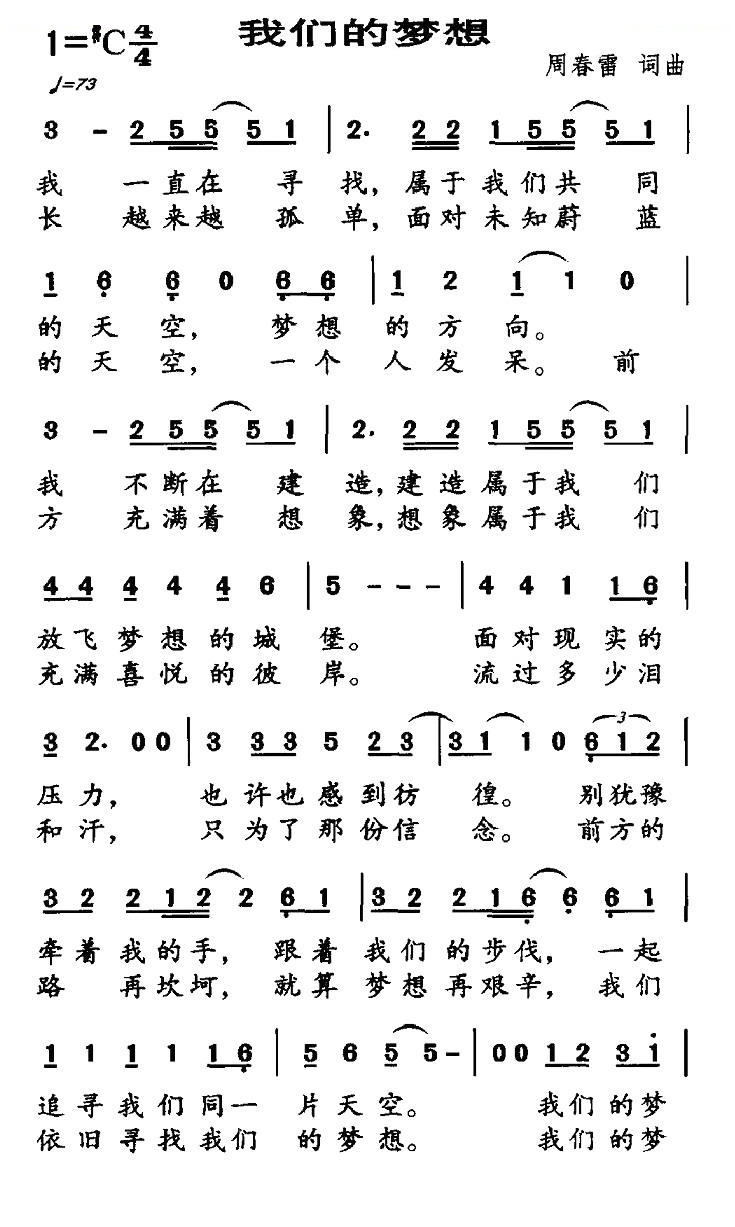 我们的梦想
1=#C 4/4
周春雷 词曲
♩=73
3 - 2 5 5 5 1 | 2. 2 2 1 5 5 5 1 |
我 一直在 寻 找, 属于我们共 同
长 越来越 孤 单, 面对未知蔚 蓝
1 6 6 0 6 6 | 1 2 1 1 0 |
的天 空, 梦想 的方 向。
的天 空, 一个 人发 呆。 前
3 - 2 5 5 5 1 | 2. 2 2 1 5 5 5 1 |
我 不断在 建 造, 建造属于我 们
方 充满着 想 象, 想象属于我 们
4 4 4 4 4 6 | 5 - - - | 4 4 1 1 6 |
放飞梦想的城 堡。 面对现实的
充满喜悦的彼 岸。 流过多少泪
3 2. 0 0 | 3 3 3 5 2 3 | 3 1 1 0 6 1 2 |
3
压力, 也许也感到彷 徨。 别犹豫
和汗, 只为了那份信 念。 前方的
3 2 2 1 2 2 6 1 | 3 2 2 1 6 6 6 1 |
牵着我的手, 跟着 我们的步伐, 一起
路 再坎坷, 就算 梦想再艰辛, 我们
1 1 1 1 1 6 | 5 6 5 5 - | 0 0 1 2 3 1 |
追寻我们同一 片天空。 我们的梦
依旧寻找我们 的梦想。 我们的梦